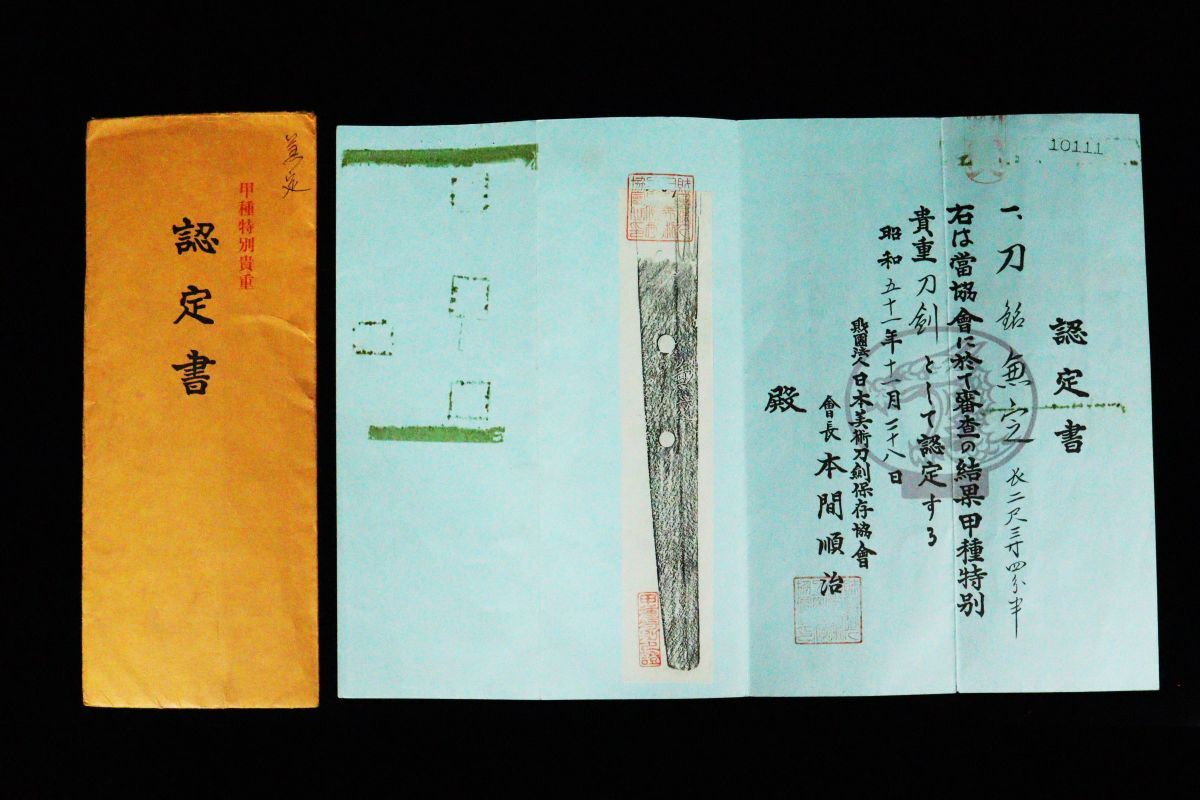 認定書
甲種特別貴重
10111
認定書
一、刀 銘 無定 長二尺三寸四分半
右は當協會に於て審査の結果甲種特別
貴重刀剣として認定する
昭和五十一年十一月二十八日
財團法人日本美術刀剣保存協會
會長 本間順治
殿